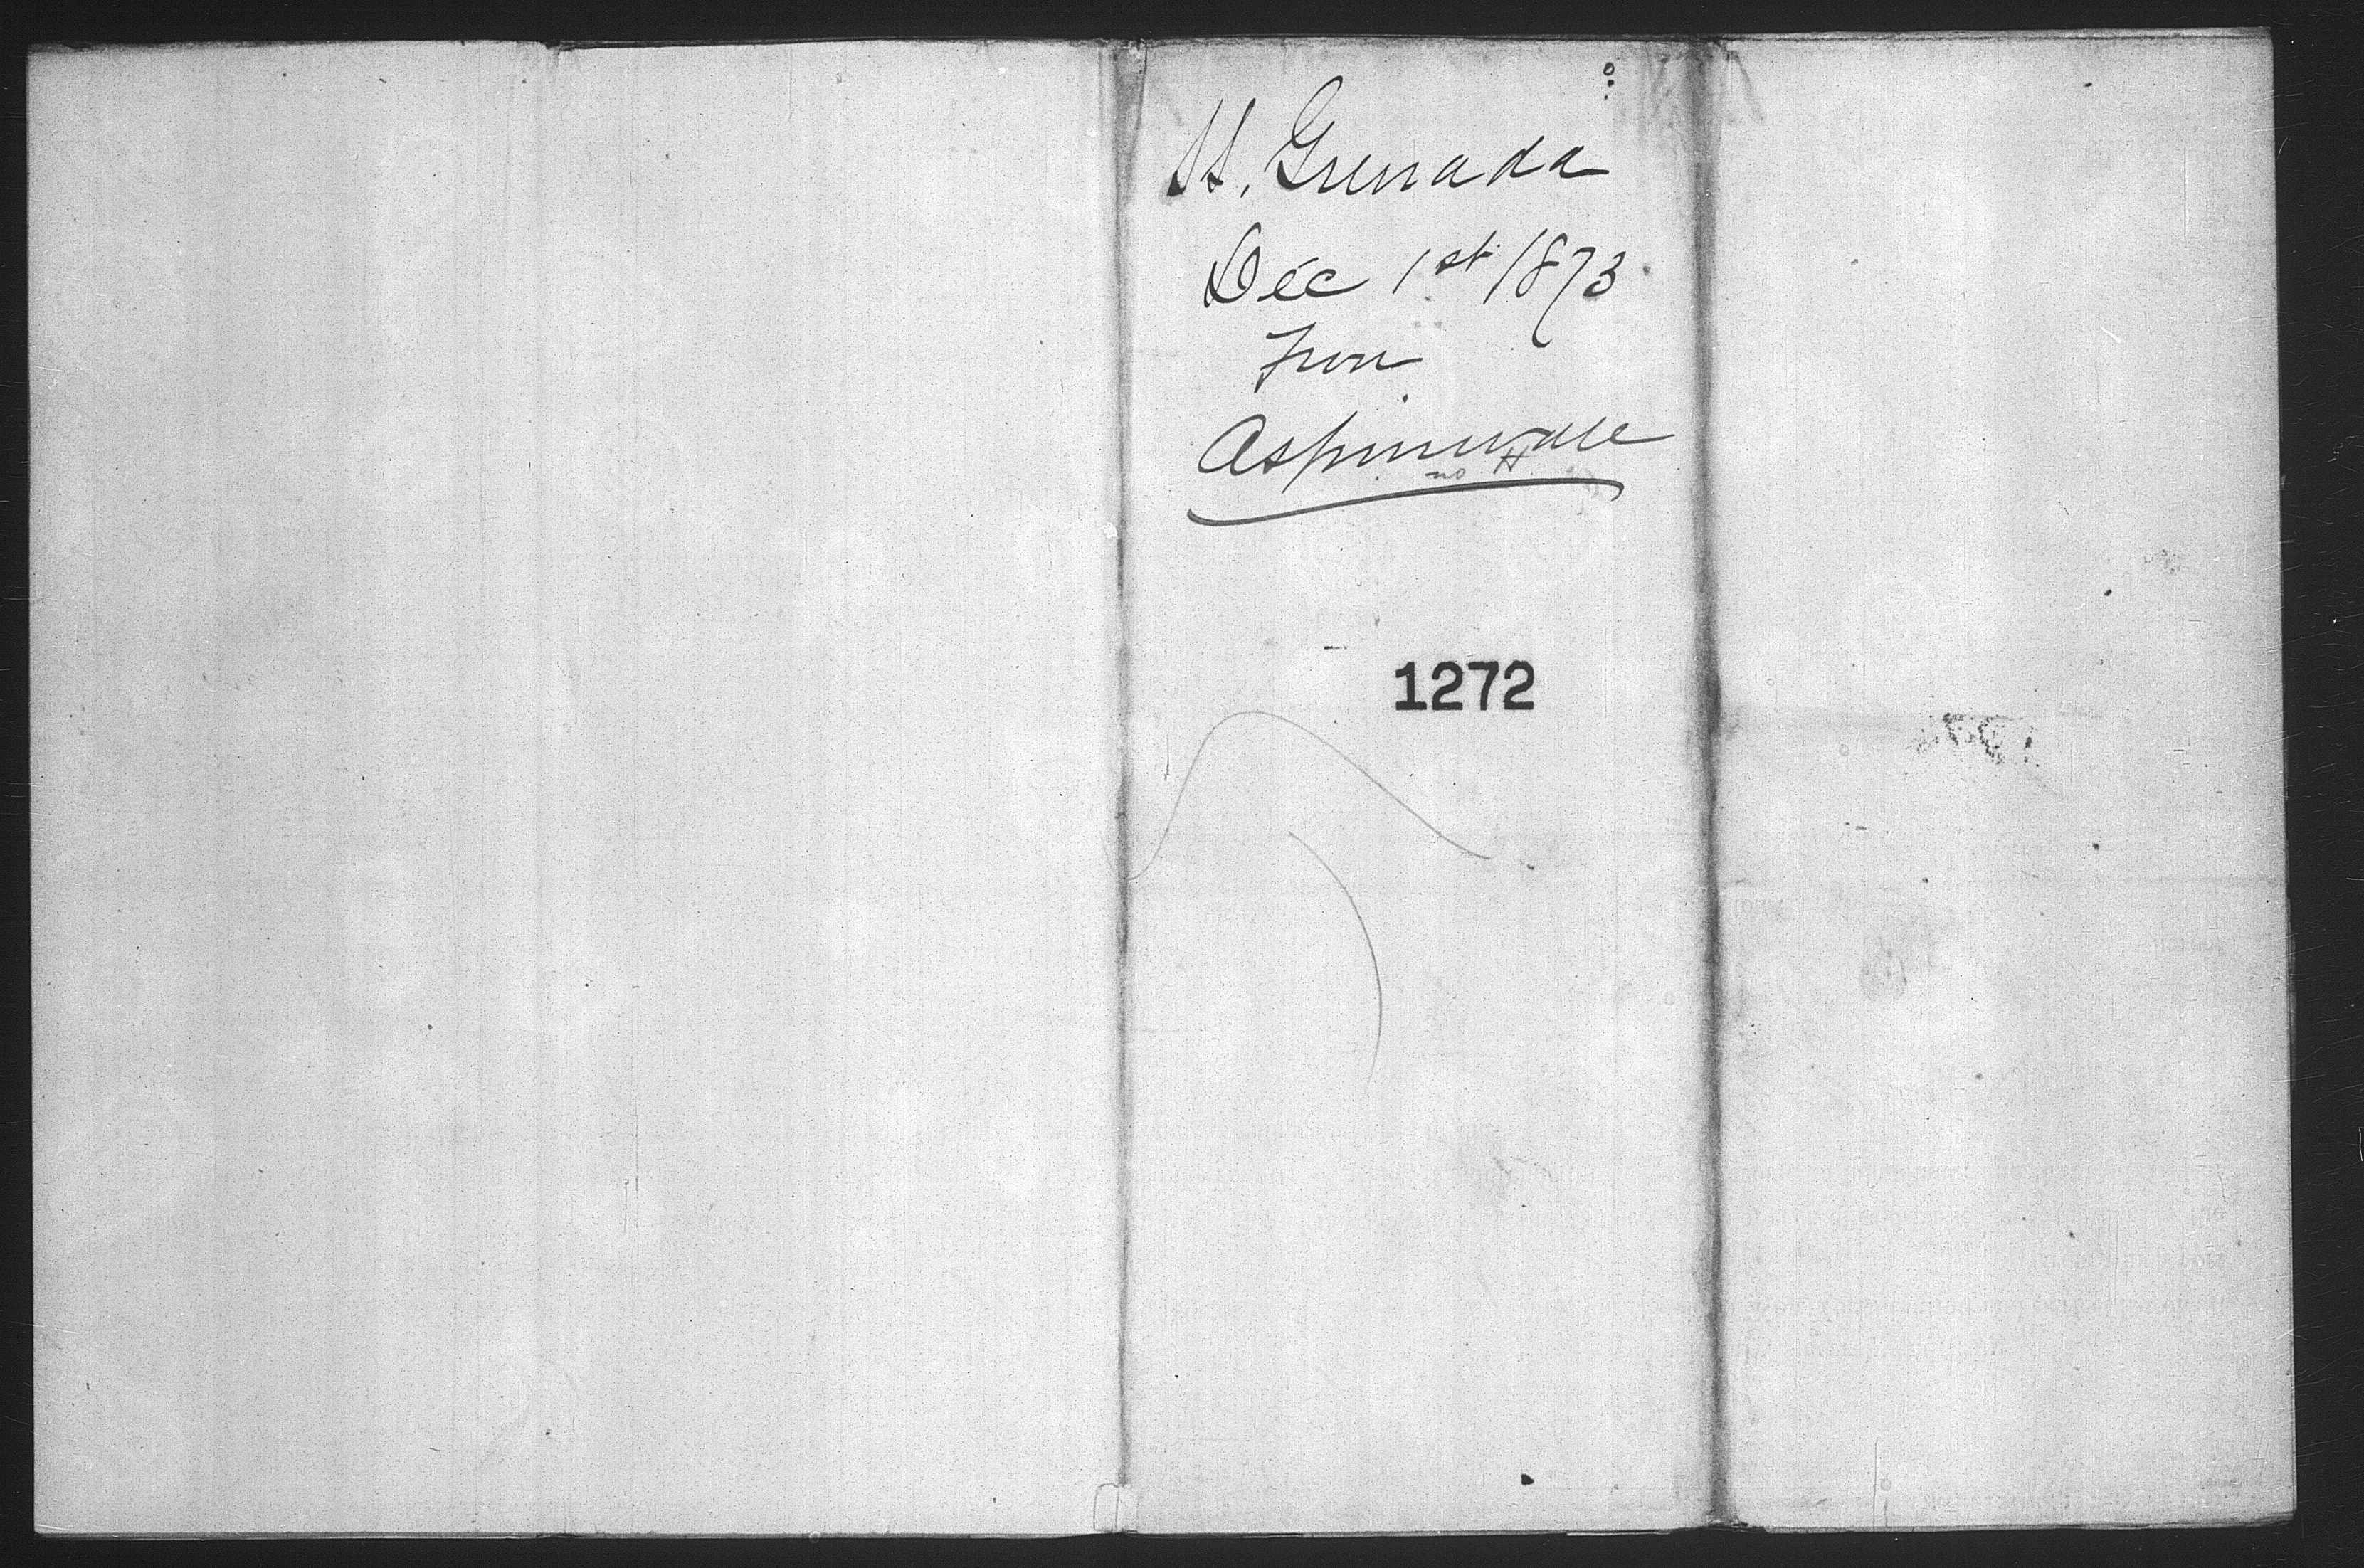 St. Grenada
Dec 1st 1873
From
Aspinwall
no H
1272